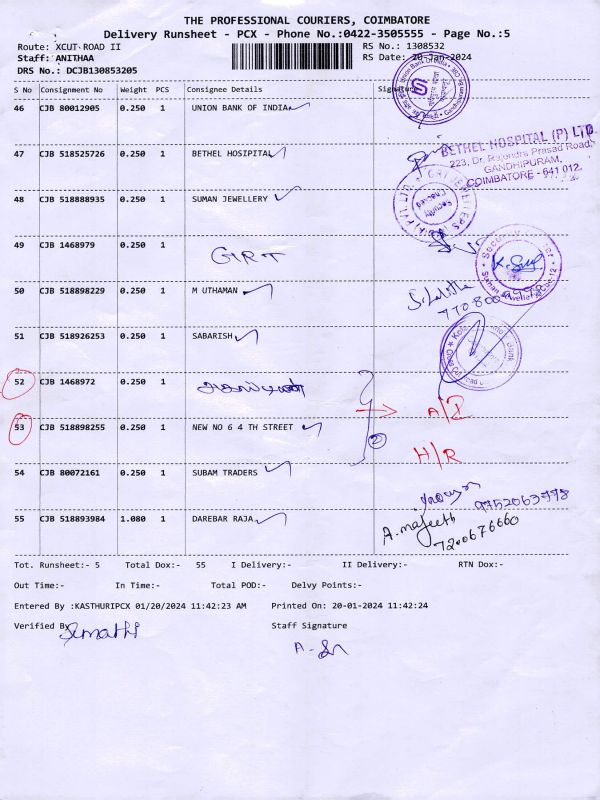 THE PROFESSIONAL COURIERS, COIMBATORE
Delivery Runsheet - PCX - Phone No.:0422-3505555 - Page No.:5
Route: XCUT ROAD II RS No.: 1308532
Staff: ANITHAA RS Date: 20-Jan-2024
DRS No.: DCJB130853205
S No Consignment Weight PCS Consignee Details Signature
46 CJB 80012905 0.250 1 UNION BANK OF INDIA
47 CJB 518525726 0.250 1 BETHEL HOSIPITAL
BETHEL HOSPITAL (P) LTD.
223, Dr. Rajendra Prasad Road,
GANDHIPURAM,
COIMBATORE - 641 012.
48 CJB 518888935 0.250 1 SUMAN JEWELLERY
Security
Checked
49 CJB 1468979 0.250 1
GRT
50 CJB 518898229 0.250 1 M UTHAMAN
51 CJB 518926253 0.250 1 SABARISH
52 CJB 1468972 0.250 1
A/I
53 CJB 518898255 0.250 1 NEW NO 6 4 TH STREET
2
H/R
54 CJB 80072161 0.250 1 SUBAM TRADERS
9752063778
55 CJB 518893984 1.080 1 DAREBAR RAJA
A. majeeth
7200676660
Tot. Runsheet:- 5 Total Dox:- 55 I Delivery:- II Delivery:- RTN Dox:-
Out Time:- In Time:- Total POD:- Delvy Points:-
Entered By :KASTHURIPCX 01/20/2024 11:42:23 AM Printed On: 20-01-2024 11:42:24
Verified By Staff Signature